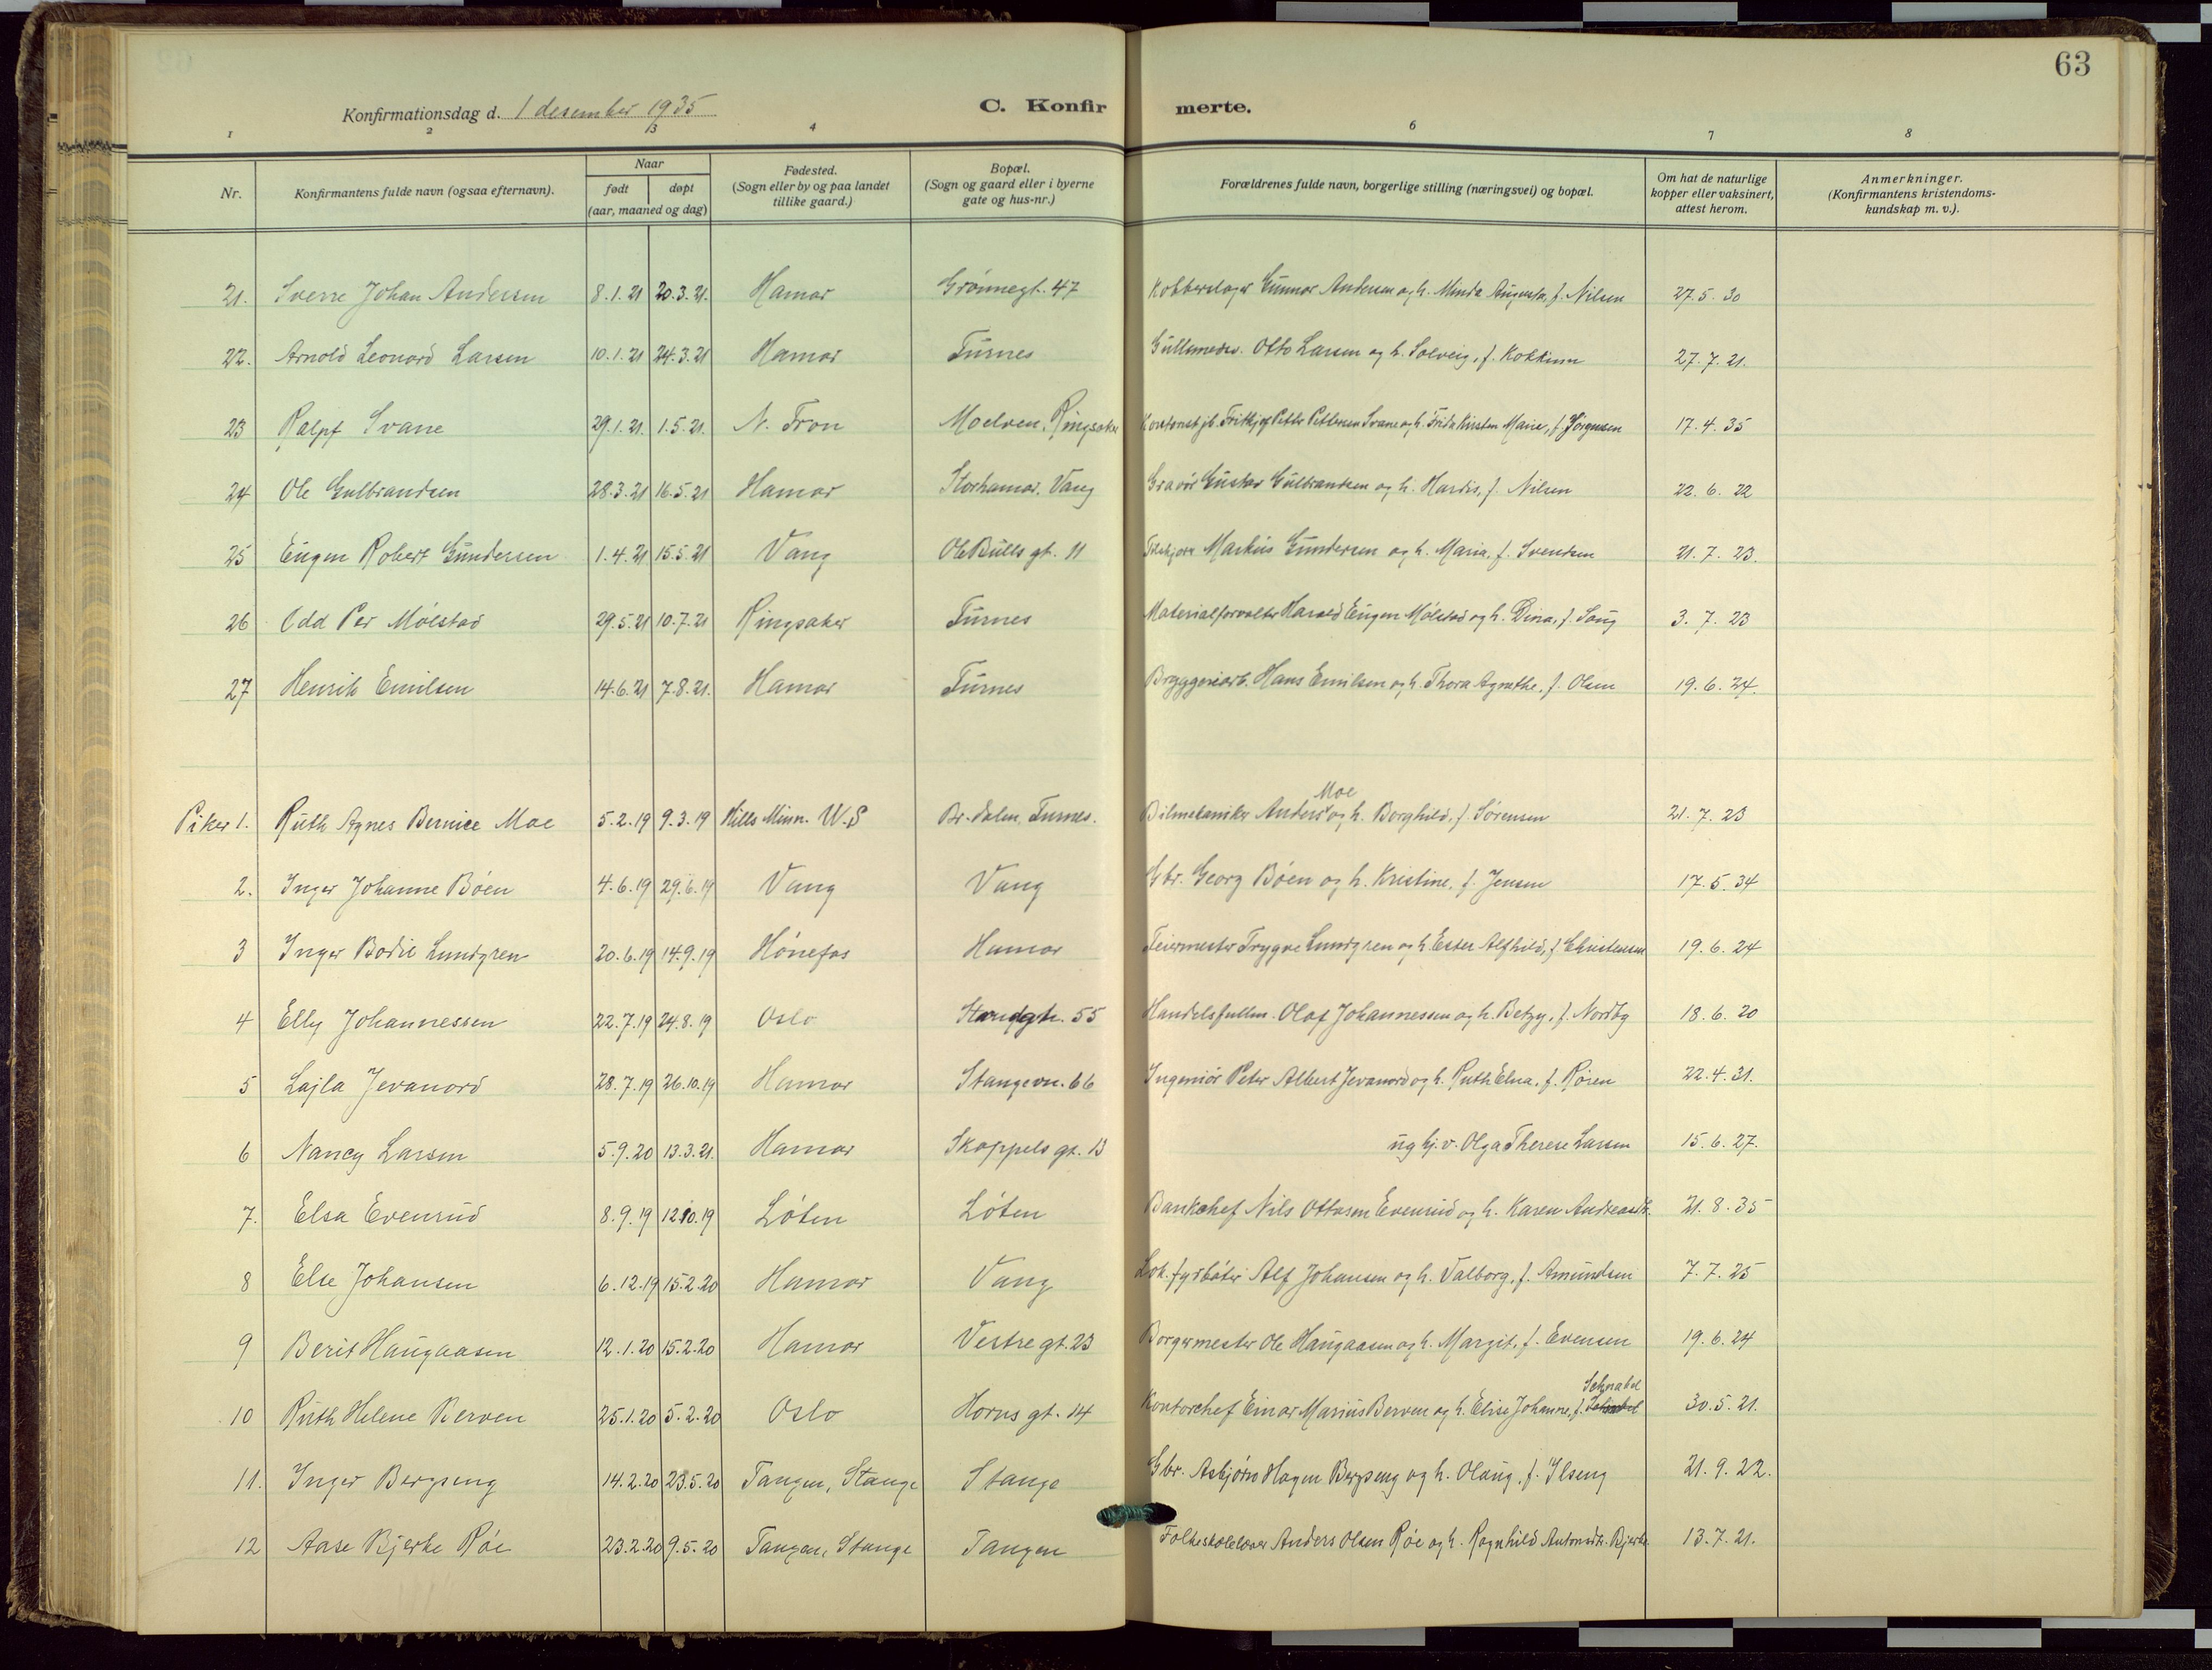 63
Konfirmationsdag d. 1 desember 1935 C. Konfir merte.
1 2 3 4 6 7 8
Nr. Konfirmantens fulde navn (ogsaa efternavn). Naar født døpt (aar, maaned og dag) Fødested. (Sogn eller by og paa landet tillike gaard.) Bopæl. (Sogn og gaard eller i byerne gate og hus-nr.) Forældrenes fulde navn, borgerlige stilling (næringsvei) og bopæl. Om hat de naturlige kopper eller vaksinert, attest herom. Anmerkninger. (Konfirmantens kristendoms-kundskap m. v.).
21. Sverre Johan Andersen 8.1.21 20.3.21. Hamar Grønnegt. 47 Kobberslager Gunnar Andersen og h. Minda Augusta, f. Nilsen 27.5.30
22. Arnold Leonard Larsen 10.1.21 24.3.21 Hamar Furnes Gullsmedsv. Otto Larsen og h. Solveig, f. Kokkinn 27.7.21.
23 Ralpf Svane 29.1.21. 1.5.21. N. Fron Moelven, Ringsaker Fritkjof Petter Pettersen Svane og h. Frida Kirsten Marie, f. Jörgensen 17.4.35
24 Ole Gulbrandsen 28.3.21 16.5.21 Hamar Storhamar, Vang Gravör Gustav Gulbrandsen og h. Hardis, f. Nilsen 22.6.22
25 Eugen Robert Gundersen 1.4.21 15.5.21 Vang Ole Bulls gt. 11 Markus Gundersen og h. Maria, f. Svendsen 21.7.23.
26 Odd Per Mölstad 29.5.21 10.7.21 Ringsaker Furnes Materialforvalter Harald Eugen Mölstad og h. Dina, f. Saug 3.7.23
27 Henrik Emilsen 14.6.21 7.8.21. Hamar Furnes Bryggeriarb. Hans Emilsen og h. Thora Agnethe, f. Olsen 19.6.24.
Piker 1. Ruth Agnes Bernice Moe 5.2.19 9.3.19 Hills Minn. W.S Br.dalen, Furnes. Bilmekaniker Anders Moe og h. Borghild, f. Sørensen 21.7.23
2. Inger Johanne Böen 4.6.19 29.6.19 Vang Vang Gbr. Georg Böen og h. Kristine, f. Jensen 17.5.34
3 Inger Bodil Lundgren 20.6.19 14.9.19 Hönefos Hamar Feiermester Trygve Lundgren og h. Ester Alfhild, f. Christensen 19.6.24
4 Elly Johannessen 22.7.19 24.8.19 Oslo Strandgt. 55 Handelsfullm. Olaf Johannessen og h. Betzy, f. Nordby 18.6.20
5 Lajla Jevanord 28.7.19 26.10.19 Hamar Stangevn. 66 Ingeniör Peter Albert Jevanord og h. Ruth Elna, f. Rören 22.4.31.
6 Nancy Larsen 5.9.20 13.3.21. Hamar Skappels gt. 13 ug kj.v. Olga Therese Larsen 15.6.27.
7. Elsa Evensud 8.9.19 12.10.19 Löten Löten Bankchef Nils Ottosen Evensud og h. Karen Andreasdt. 21.8.35
8 Else Johansen 6.12.19 15.2.20 Hamar Vang Lok.fyrböter Alf Johansen og h. Valborg, f. Amundsen 7.7.25
9 Berit Haugaasen 12.1.20 15.2.20 Hamar Vestre gt. 23 Borgermester Ole Haugaasen og h. Margit, f. Evensen 19.6.24
10 Ruth Helene Berven 25.1.20 5.2.20 Oslo Horns gt. 14 Kontorchef Einar Marius Berven og h. Elise Johanne, f. Schnabel 30.5.21.
11. Inger Bergseng 14.2.20 23.5.20 Tangen, Stange Stange Gbr. Asbjørn Hagen Bergseng og h. Olaug, f. Ilseng 21.9.22.
12 Aase Bjerke Röe 23.2.20 9.5.20 Tangen, Stange Tangen Folkeskolelærer Anders Olsen Röe og h. Ragnhild Antonsdt. Bjerke 13.7.21.